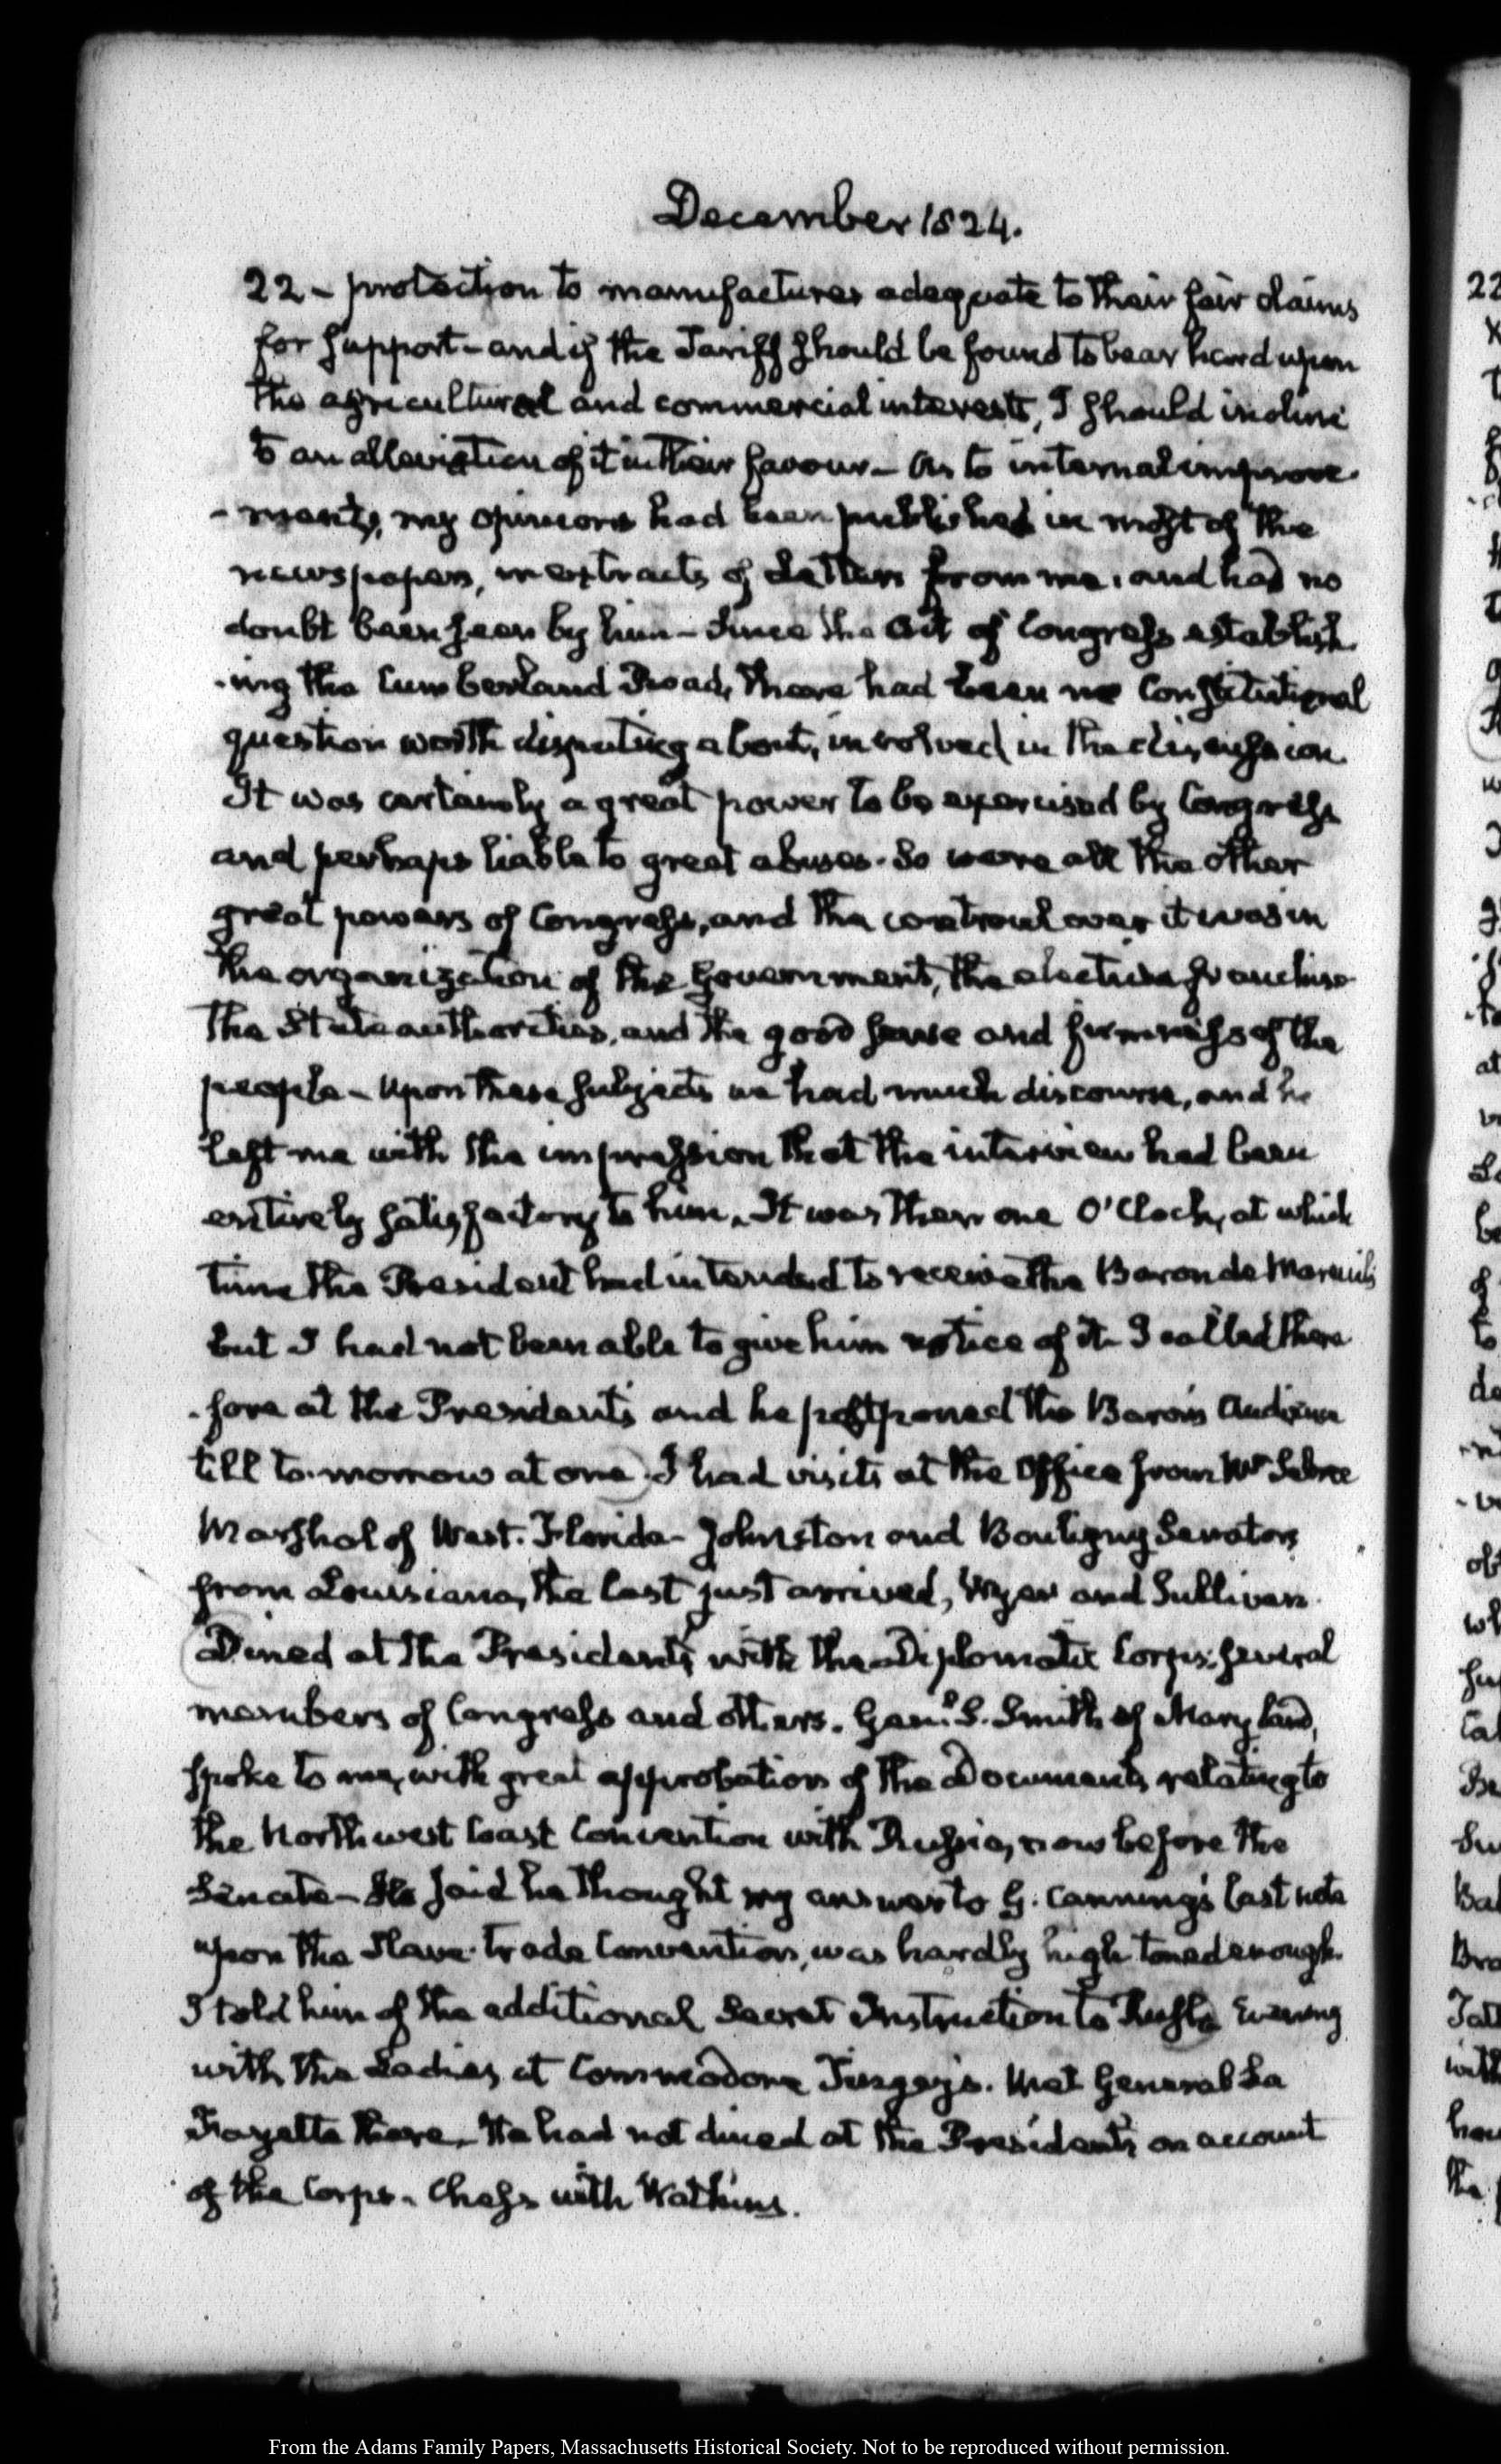 December 1824.
22 - protection to manufactures adequate to their fair claims
for support - and if the Tariff should be found to bear hard upon
the agricultural and commercial interests, I should incline
to an alleviation of it in their favour - As to internal improve-
-ments, my opinions had been published in most of the
newspapers, in extracts of Letters from me, and had no
doubt been seen by him - Since the Act of Congress establish-
-ing the Cumberland Road, there had been no Constitutional
question worth disputing about, involved in the discussion.
It was certainly a great power to be exercised by Congress
and perhaps liable to great abuses. So were all the other
great powers of Congress, and the controul over it was in
the organization of the Government, the elective franchise
the State authorities, and the good sense and firmness of the
people - Upon these subjects we had much discourse, and he
left me with the impression that the interview had been
entirely satisfactory to him. It was then one O'Clock, at which
time the President had intended to receive the Baron de Mareuil;
but I had not been able to give him notice of it - I called there-
-fore at the Presidents and he postponed the Baron's Audience
till to-morrow at one. I had visits at the Office from Mr. Sebree
Marshal of West-Florida - Johnston and Bouligny Senators
from Louisiana, the last just arrived, Wyer and Sullivan.
Dined at the President's with the Diplomatic Corps, several
members of Congress and others. Genl. S. Smith of Maryland,
spoke to me, with great approbation of the Documents relating to
the Northwest Coast Convention with Russia, now before the
Senate - He said he thought my answer to G. Canning's last note
upon the Slave-trade Convention, was hardly high toned enough.
I told him of the additional Secret Instruction to Rush. Evening
with the Ladies at Commodore Tingey's. Met General La
Fayette there. He had not dined at the President's on account
of the Corps. Chess with Watkins.
From the Adams Family Papers, Massachusetts Historical Society. Not to be reproduced without permission.